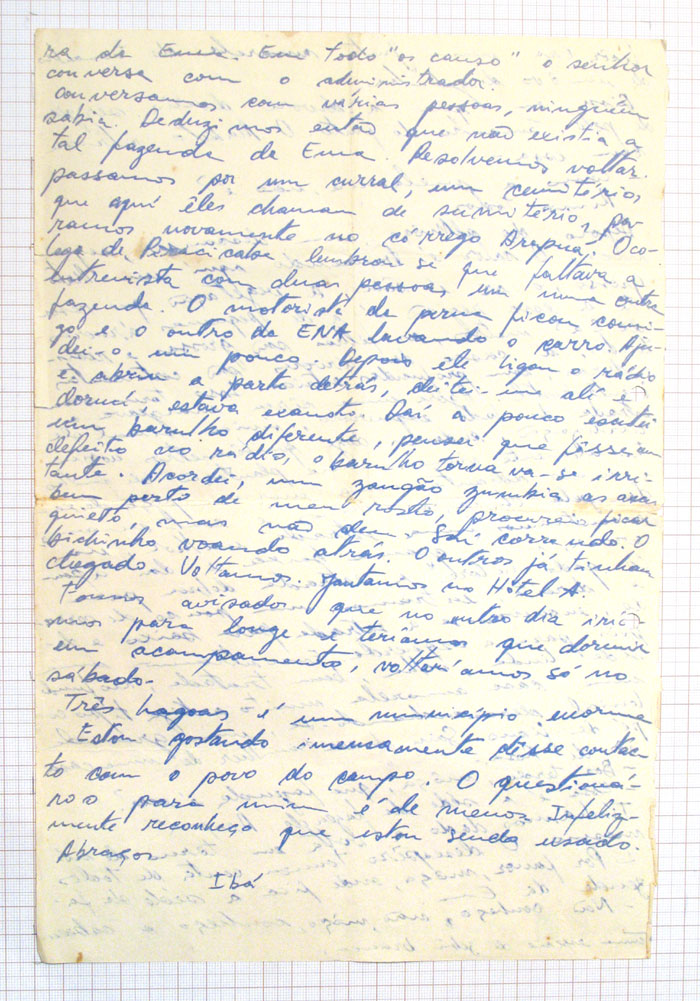 ra da Ema. Em todo "os causo" o senhor
conversa com o administrador.
conversamos com várias pessoas, ninguém
sabia. Deduzimos então que não existia a
tal fazenda da Ema. Resolvemos voltar.
passamos por um curral, um cemitérios
que aqui êles chamam de sumitério, pa-
ramos novamente no córrego Arapuá. O co-
lega de Piracicaba lembrou-se que faltava a
entrevista com duas pessoas em uma outra
fazenda. O motorista da perua ficou comi-
go e o outro da ENA lavando o carro. Aju-
dei-o um pouco. Depois êle ligou o rádio
e abriu a parte detrás, deitei-me ali e
dormi, estava exausto. Daí a pouco escutei
um barulho diferente, pensei que fôsse um
defeito no rádio, o barulho tornava-se irri-
tante. Acordei, um zangão zumbia as asas
bem perto de meu rosto, procurei ficar
quieto, mas não deu. Saí correndo. O
bichinho voando atrás. O outros já tinham
chegado. Voltamos. Jantamos no Hotel A.
Fomos avisados que no outro dia iría-
mos para longe e teríamos que dormir
em acampamento, voltaríamos só no
sábado.
Três Lagoas é um município enorme
Estou gostando imensamente dêsse contac-
to com o povo do campo. O questioná-
rio para mim é de menos. Infeliz-
mente reconheço que estou sendo usado.
Abraços
Ibá